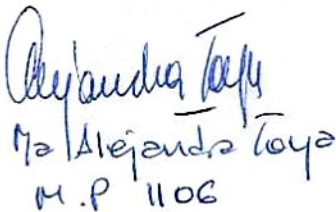 Alejandra Toya
Ma Alejandra Toya
M.P 1106